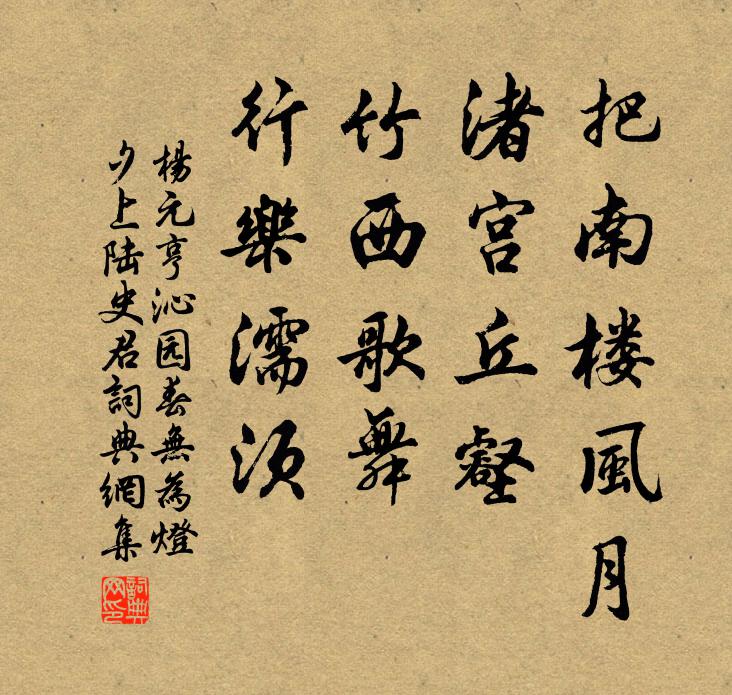 把南楼風月
渚宫丘壑
竹西歌舞
行樂濡须
楊元亨沁园春無為燈
夕上陆史君詞典網集
詞典
网印